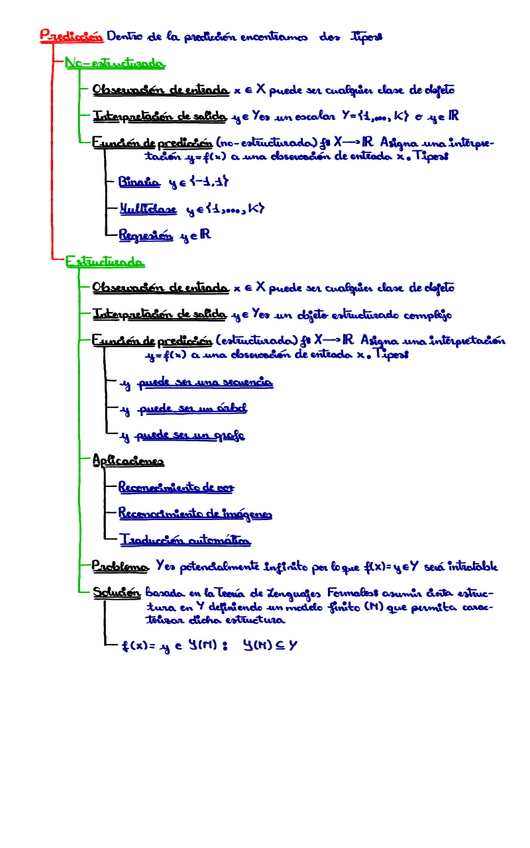 Predicción Dentro de la predicción encontramos dos tipos:
No-estructurada
Observación de entrada x ∈ X puede ser cualquier clase de objeto
Interpretación de salida y ∈ Y es un escalar Y={1,..., K} o y ∈ ℝ
Función de predicción (no-estructurada) f: X → ℝ Asigna una interpre-
tación y=f(x) a una observación de entrada x. Tipos:
Binaria y ∈ {-1,1}
Multiclase y ∈ {1,..., K}
Regresión y ∈ ℝ
Estructurada
Observación de entrada x ∈ X puede ser cualquier clase de objeto
Interpretación de salida y ∈ Y es un objeto estructurado complejo
Función de predicción (estructurada) f: X → ℝ Asigna una interpretación
y=f(x) a una observación de entrada x. Tipos:
y puede ser una secuencia
y puede ser un árbol
y puede ser un grafo
Aplicaciones
Reconocimiento de voz
Reconocimiento de imágenes
Traducción automática
Problema Y es potencialmente infinito por lo que f(x)=y ∈ Y será intratable
Solución basada en la Teoría de Lenguajes Formales: asumir cierta estruc-
tura en Y definiendo un modelo finito (M) que permita carac-
terizar dicha estructura
f(x)= y ∈ Y(M) : Y(M) ⊆ Y